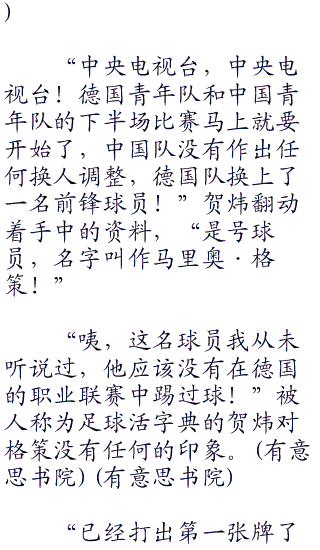 )
“中央电视台，中央电
视台！德国青年队和中国青
年队的下半场比赛马上就要
开始了，中国队没有作出任
何换人调整，德国队换上了
一名前锋球员！”贺炜翻动
着手中的资料，“是号球
员，名字叫作马里奥·格
策！”
“咦，这名球员我从未
听说过，他应该没有在德国
的职业联赛中踢过球！”被
人称为足球活字典的贺炜对
格策没有任何的印象。(有意
思书院)(有意思书院)
“已经打出第一张牌了